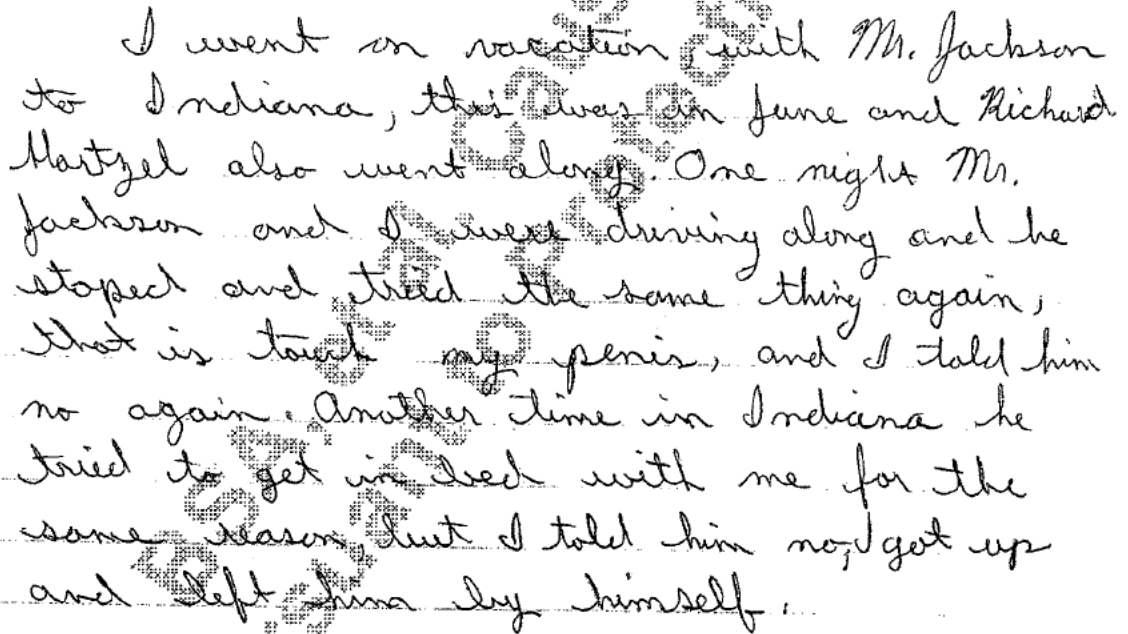 I went on vacation with Mr. Jackson
to Indiana, this was in June and Richard
Hartzel also went along. One night Mr.
Jackson and I were driving along and he
stoped and tried the same thing again,
that is touch my penis, and I told him
no again. Another time in Indiana he
tried to get in bed with me for the
same reason, but I told him no, I got up
and left him by himself.